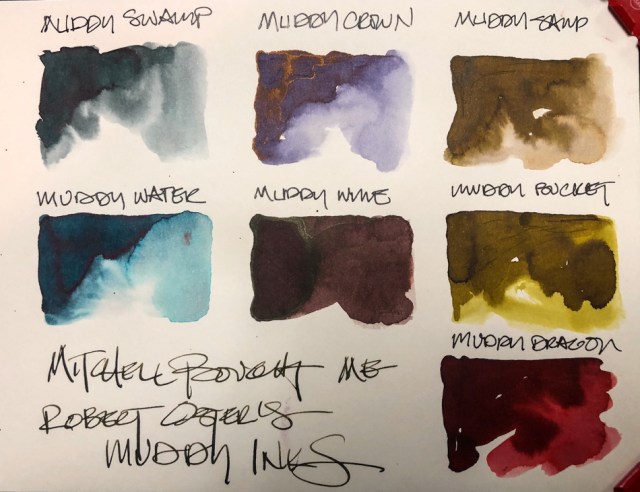 MUDDY SWAMP
MUDDY CROWN
MUDDY SAND
MUDDY WATER
MUDDY WINE
MUDDY BUCKET
MUDDY DRAGON
MITCHELL BOUGHT ME
ROBERT OSTER'S
MUDDY INKS